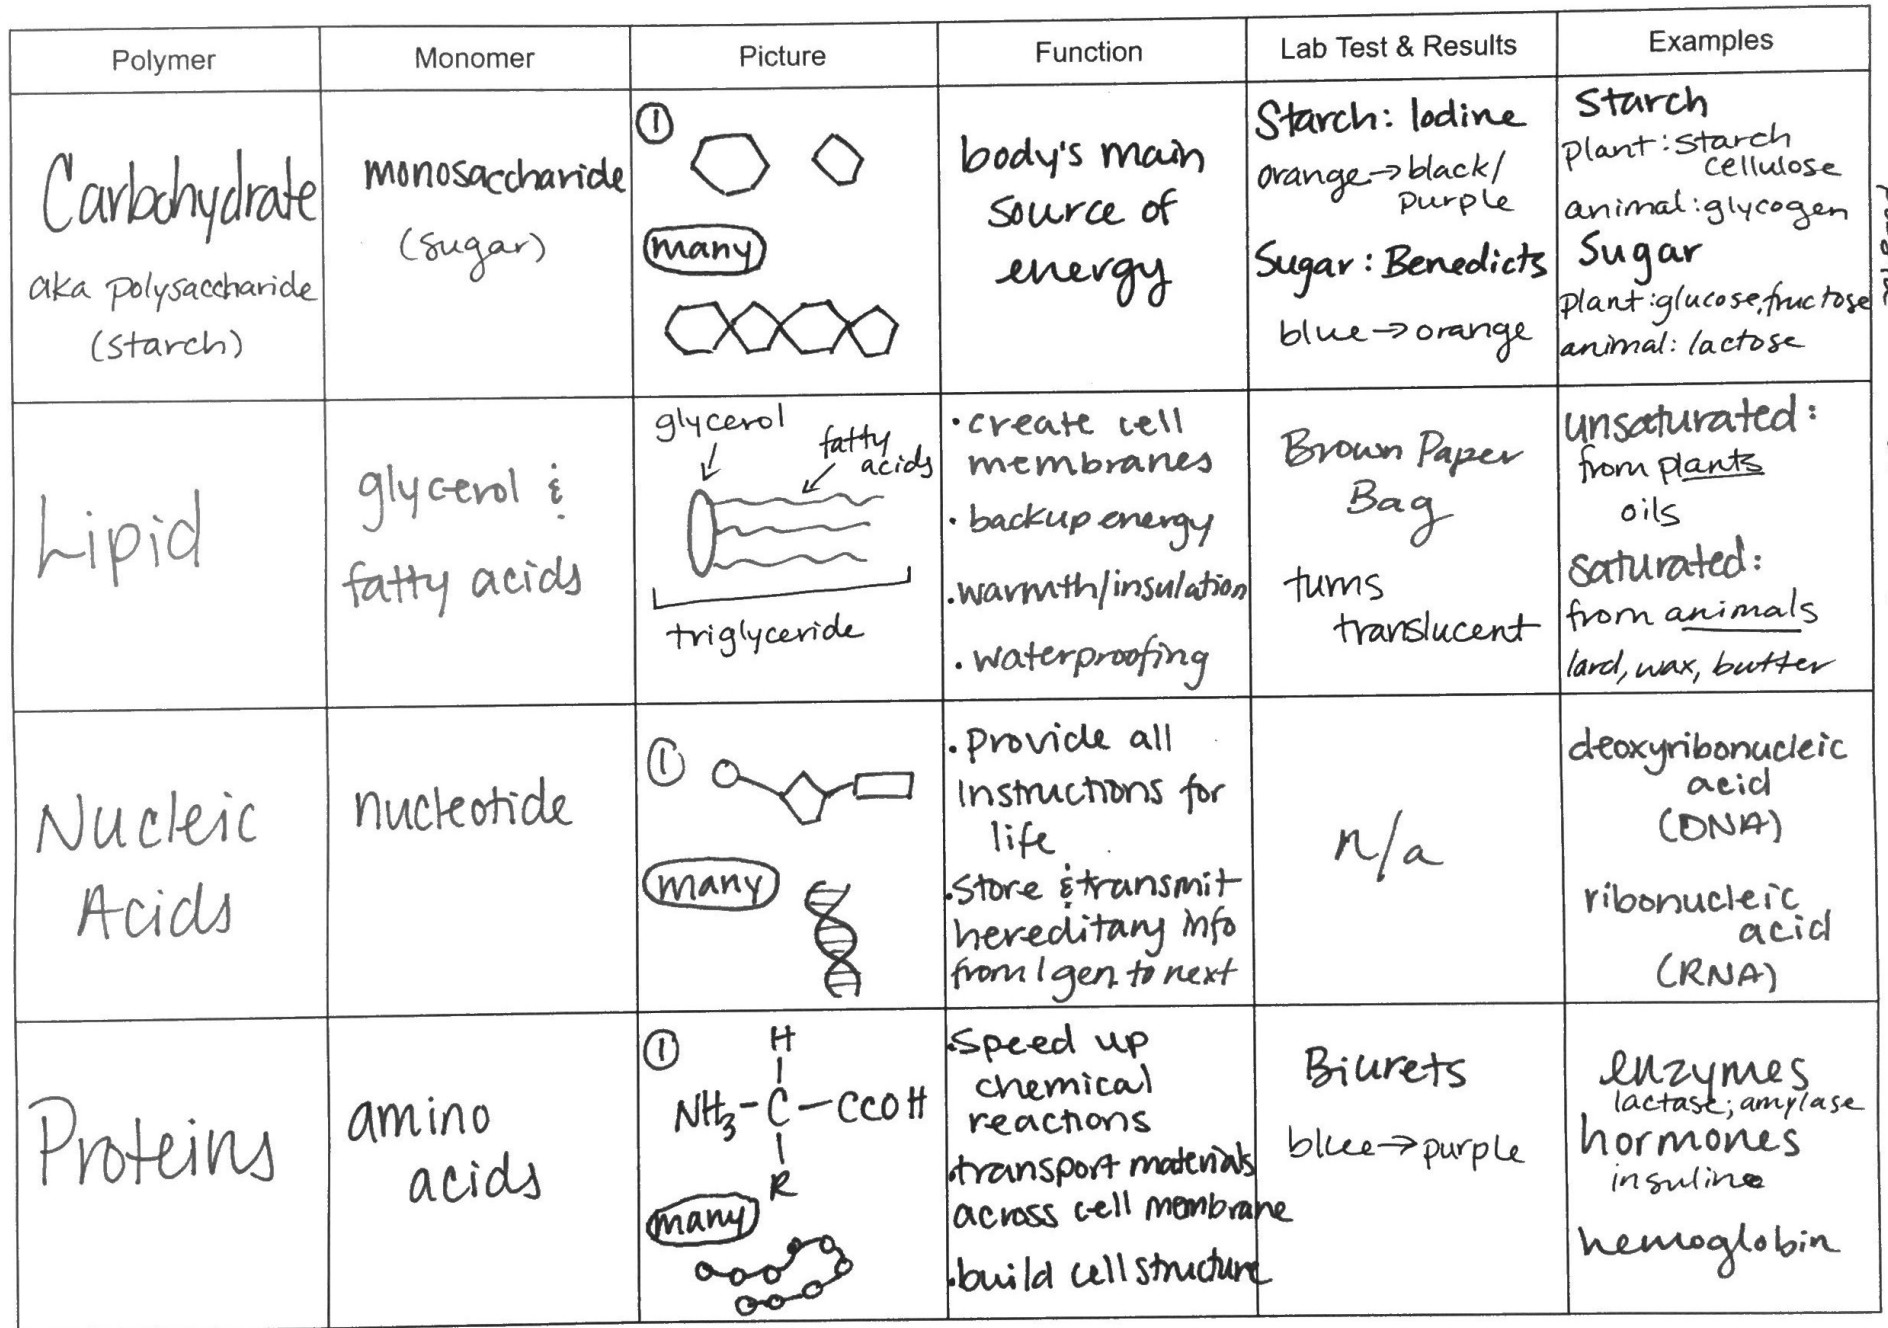 Polymer
Monomer
Picture
Function
Lab Test & Results
Examples
Carbohydrate
aka polysaccharide
(starch)
monosaccharide
(sugar)
1
many
body's main
source of
energy
Starch: Iodine
orange→black/
purple
Sugar: Benedicts
blue→orange
Starch
plant: starch
cellulose
animal: glycogen
Sugar
plant: glucose, fructose
animal: lactose
Lipid
glycerol &
fatty acids
glycerol
fatty
acids
triglyceride
• create cell
membranes
• backup energy
• warmth/insulation
• waterproofing
Brown Paper
Bag
turns
translucent
unsaturated:
from plants
oils
saturated:
from animals
lard, wax, butter
Nucleic
Acids
nucleotide
1
many
• provide all
instructions for
life
• store & transmit
hereditary info
from 1 gen to next
n/a
deoxyribonucleic
acid
(DNA)
ribonucleic
acid
(RNA)
Proteins
amino
acids
1
H
NH3-C-CCOH
R
many
• Speed up
chemical
reactions
• transport materials
across cell membrane
• build cell structure
Biurets
blue→purple
enzymes
lactase; amylase
hormones
insuline
hemoglobin